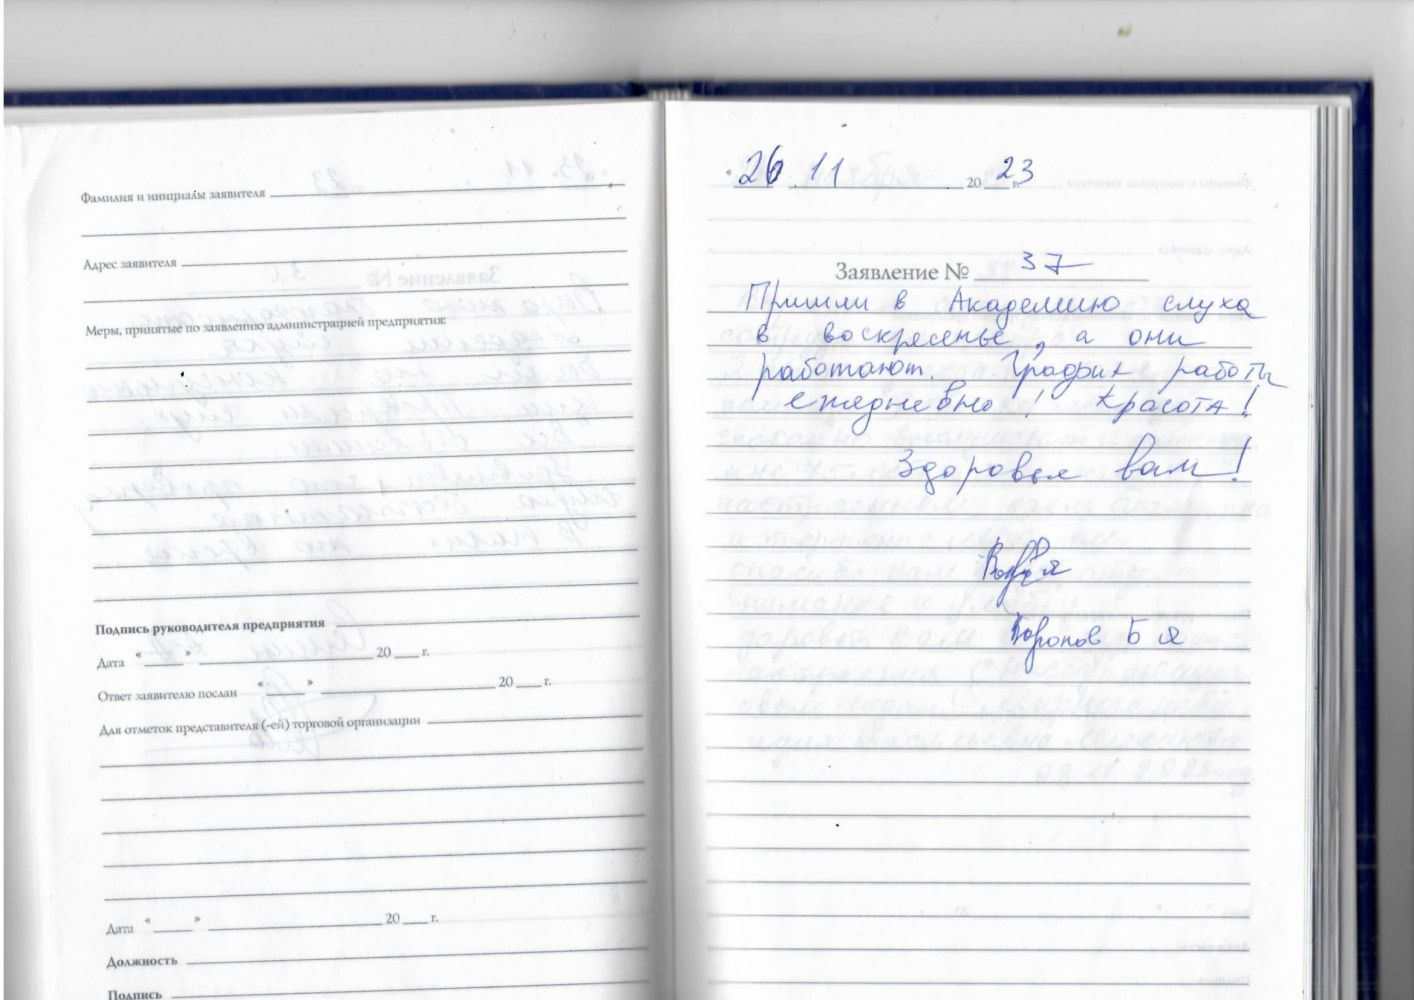 Фамилия и инициалы заявителя
Адрес заявителя
Меры, принятые по заявлению администрацией предприятия:
Подпись руководителя предприятия
Дата « » 20 г.
Ответ заявителю послан « » 20 г.
Для отметок представителя (-ей) торговой организации
Дата « » 20 г.
Должность
Подпись
« 26 11 20 23 г.
Заявление № 37
Пришли в Академию слуха
в воскресенье, а они
работают. График работы
ежедневно! Красота!
Здоровья вам!
Воронов Б Я